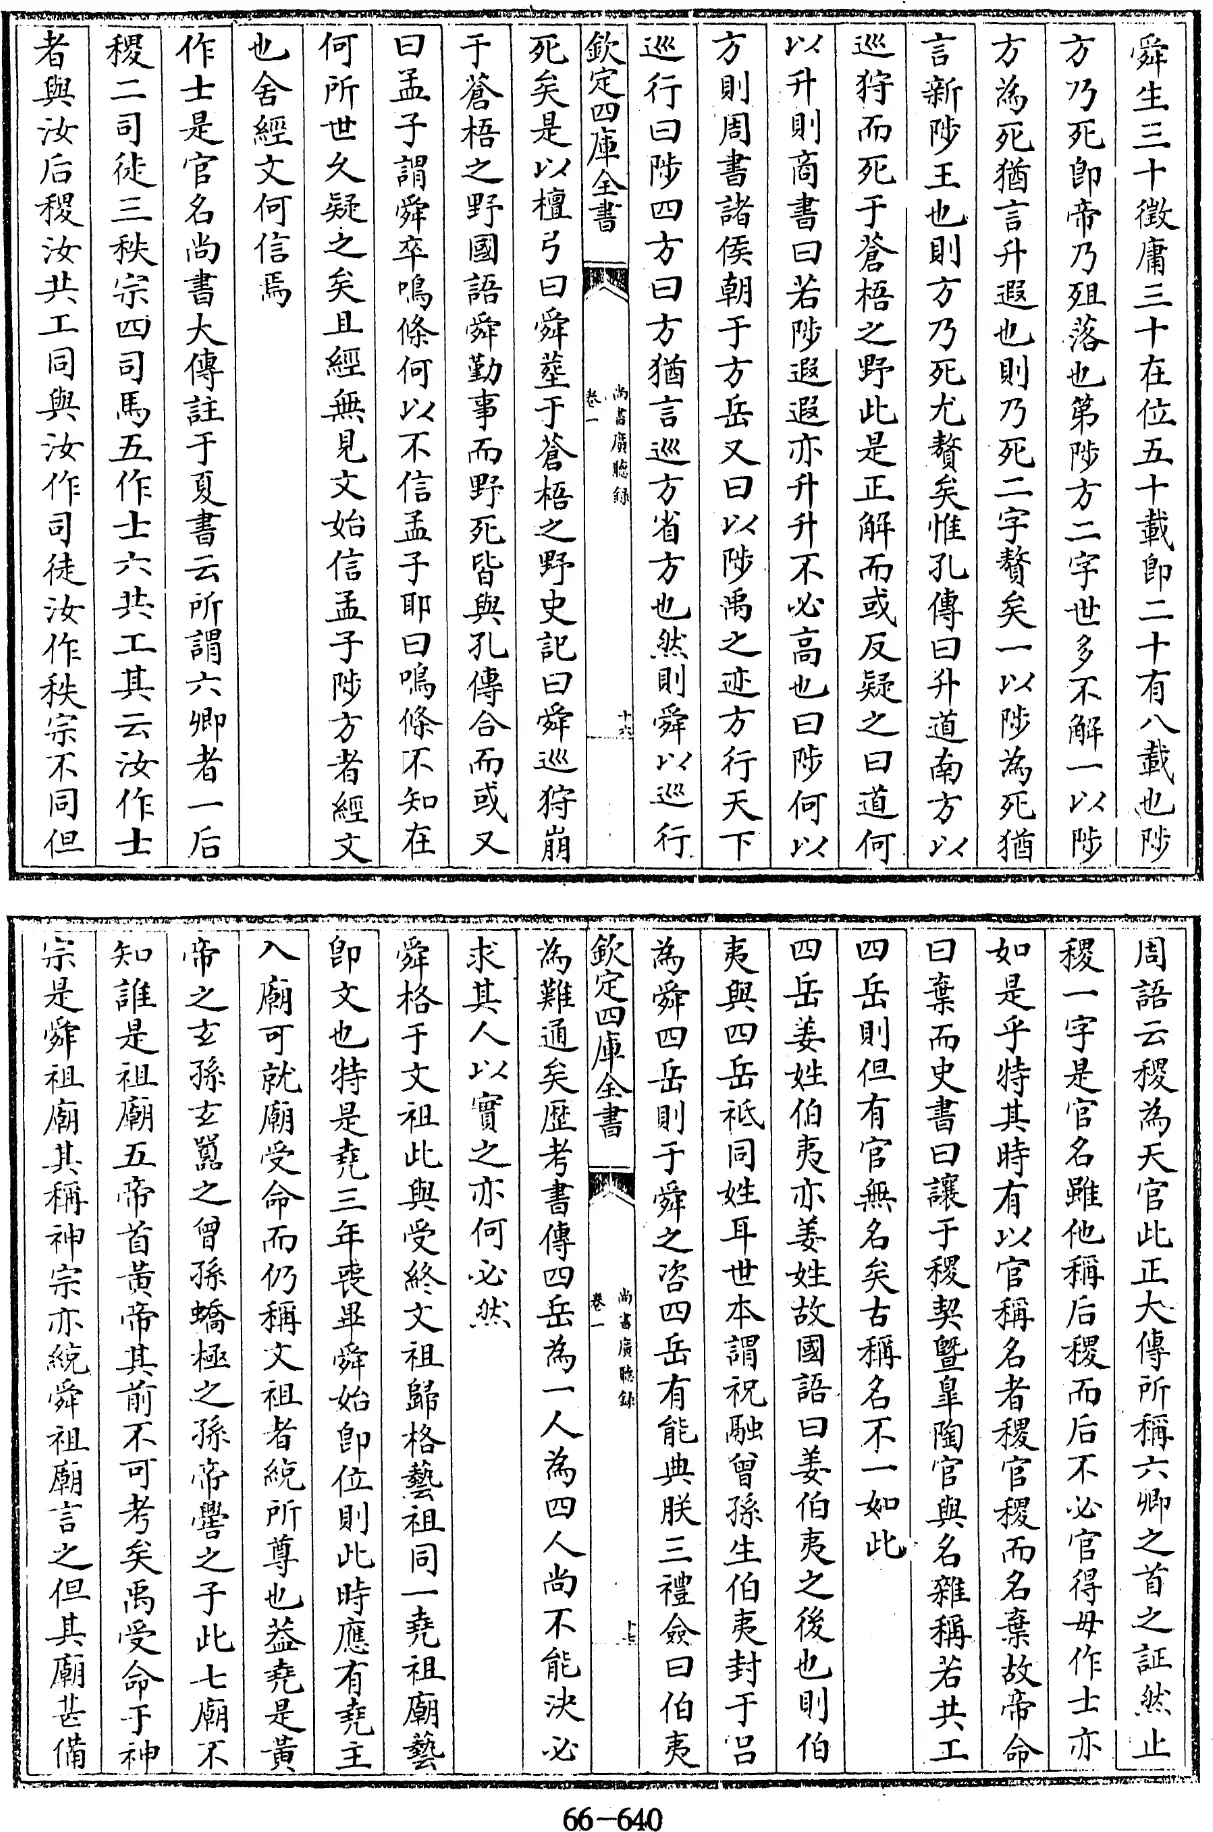 舜生三十徵庸三十在位五十載即二十有八載也陟
方乃死即帝乃殂落也第陟方二字世多不解一以陟
方為死猶言升遐也則乃死二字贅矣一以陟為死猶
言新陟王也則方乃死尤贅矣惟孔傳曰升道南方以
巡狩而死于蒼梧之野此是正解而或反疑之曰道何
以升則商書曰若陟遐遐亦升升不必高也曰陟何以
方則周書諸侯朝于方岳又曰以陟禹之迹方行天下
巡行曰陟四方曰方猶言巡方省方也然則舜以巡行
欽定四庫全書
尚書廣聽録
卷一
十六
死矣是以檀弓曰舜塟于蒼梧之野史記曰舜巡狩崩
于蒼梧之野國語舜勤事而野死皆與孔傳合而或又
曰孟子謂舜卒鳴條何以不信孟子耶曰鳴條不知在
何所世久疑之矣且經無見文始信孟子陟方者經文
也舍經文何信焉
作士是官名尚書大傳註于夏書云所謂六卿者一后
稷二司徒三秩宗四司馬五作士六共工其云汝作士
者與汝后稷汝共工同與汝作司徒汝作秩宗不同但
周語云稷為天官此正大傳所稱六卿之首之証然止
稷一字是官名雖他稱后稷而后不必官得毋作士亦
如是乎特其時有以官稱名者稷官稷而名棄故帝命
曰棄而史書曰讓于稷契暨臯陶官與名雜稱若共工
四岳則但有官無名矣古稱名不一如此
四岳姜姓伯夷亦姜姓故國語曰姜伯夷之後也則伯
夷與四岳祗同姓耳世本謂祝融曾孫生伯夷封于呂
為舜四岳則于舜之咨四岳有能典朕三禮僉曰伯夷
欽定四庫全書
尚書廣聽録
卷一
十七
為難通矣歷考書傳四岳為一人為四人尚不能決必
求其人以實之亦何必然
舜格于文祖此與受終文祖歸格藝祖同一堯祖廟藝
即文也特是堯三年喪畢舜始即位則此時應有堯主
入廟可就廟受命而仍稱文祖者統所尊也葢堯是黃
帝之玄孫玄囂之曾孫蟜極之孫帝嚳之子此七廟不
知誰是祖廟五帝首黃帝其前不可考矣禹受命于神
宗是舜祖廟其稱神宗亦統舜祖廟言之但其廟甚備
66-640